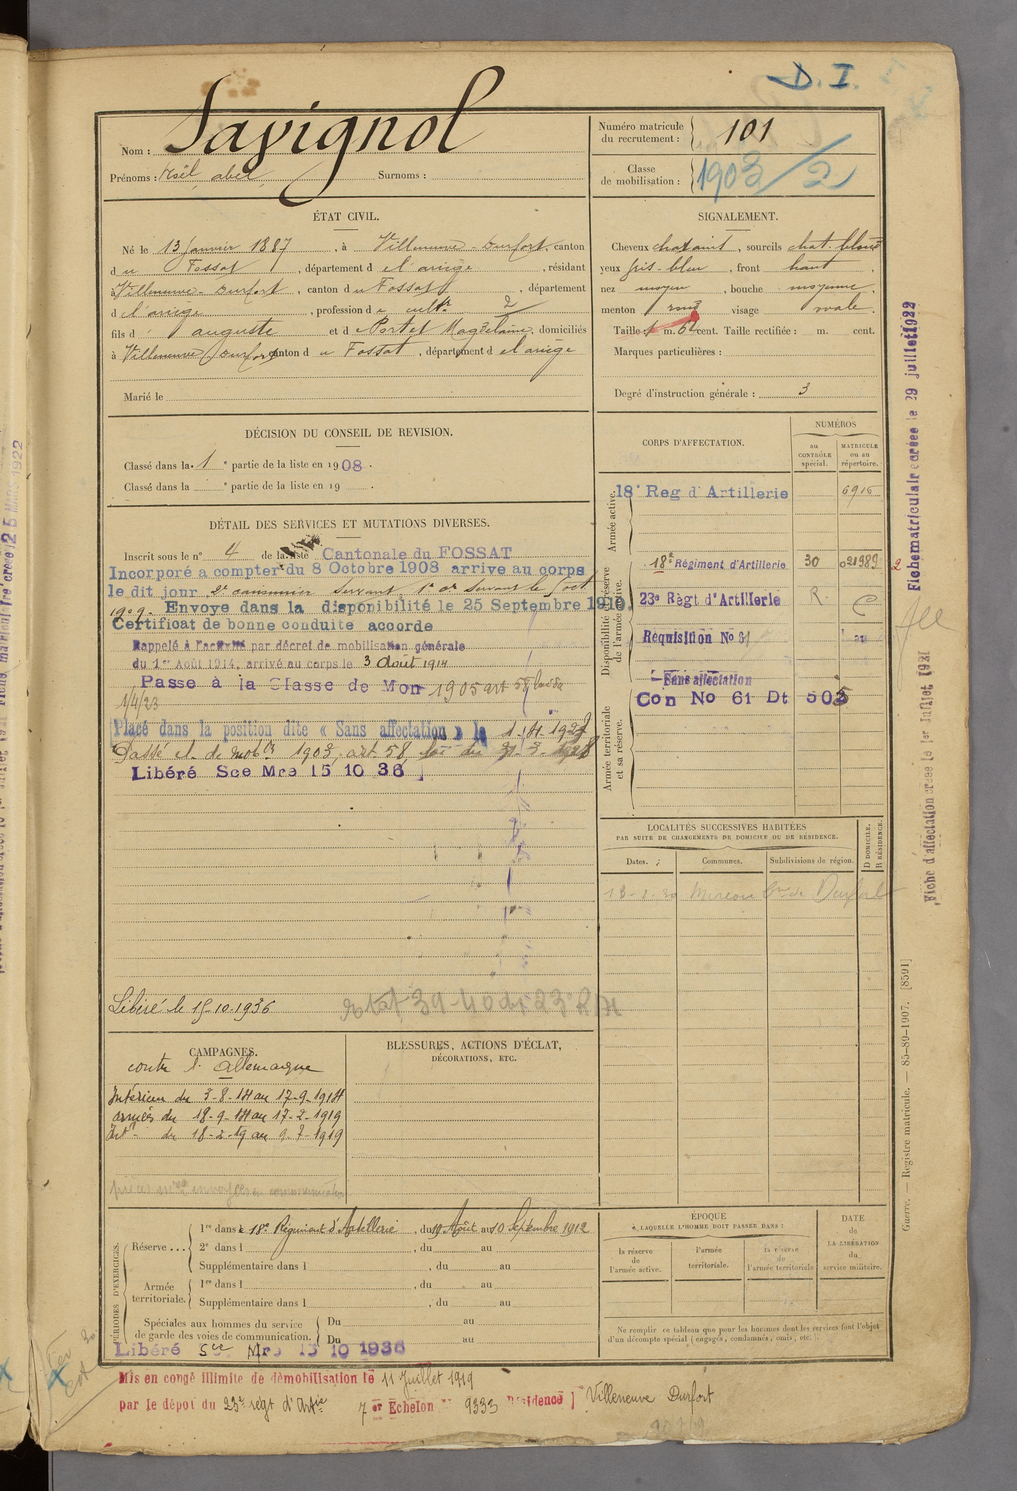 D. I.
Nom : Savignol
Prénoms : Noël, abel, Surnoms :
Numéro matricule du recrutement : 101
Classe de mobilisation : 1903/2
ÉTAT CIVIL.
Né le 13 Janvier 1887, à Villeneuve-Durfort, canton
du Fossat, département de l'ariège, résidant
à Villeneuve-Durfort, canton du Fossat, département
de l'ariège, profession de cultr 2
fils d' auguste et de Portet Magdelaine, domiciliés
à Villeneuve Durfort canton du Fossat, département de l'ariège
Marié le
SIGNALEMENT.
Cheveux chataint, sourcils chat. blond
yeux gris-bleu, front haut,
nez moyen, bouche moyenne,
menton rond visage ovale.
Taille : 1 m. 62 cent. Taille rectifiée : m. cent.
Marques particulières :
Degré d'instruction générale : 3
DÉCISION DU CONSEIL DE REVISION.
Classé dans la 1e partie de la liste en 1908.
Classé dans la e partie de la liste en 19 .
DÉTAIL DES SERVICES ET MUTATIONS DIVERSES.
Inscrit sous le n° 4 de la liste Cantonale du FOSSAT
Incorporé a compter du 8 Octobre 1908 arrive au corps
le dit jour 2e canonnier servant, 1er cr servant le
1909. Envoye dans la disponibilité le 25 Septembre 1910.
Certificat de bonne conduite accorde
Rappelé à l'activité par décret de mobilisation générale
du 1er Août 1914, arrivé au corps le 3 Août 1914
Passe à la Classe de Mon 1905 art 58
1/4/23
Placé dans la position dite « Sans affectation » le
Passé cl. de mobon 1903, art. 58, loi du 31-3-1928
Libéré Sce Mre 15 10 36
Libéré le 15-10-1936
CORPS D'AFFECTATION.
NUMÉROS
au CONTRÔLE spécial.
MATRICULE ou au répertoire.
Armée active.
18e Reg d'Artillerie 6916
Disponibilité et réserve de l'armée active.
18e Régiment d'Artillerie 30 021989
23e Règt d'Artillerie R. C
Requisition No 61
Sans affectation
Armée territoriale et sa réserve.
Con No 61 Dt 505
LOCALITÉS SUCCESSIVES HABITÉES
PAR SUITE DE CHANGEMENTS DE DOMICILE OU DE RÉSIDENCE.
Dates. Communes. Subdivisions de région. D DOMICILE. R RÉSIDENCE.
CAMPAGNES.
contre l'Allemagne
Intérieur du 3-8-14 au 17-9-1914
armées du 18-9-14 au 17-2-1919
Intr du 18-2-19 au 9-7-1919
BLESSURES, ACTIONS D'ÉCLAT,
DÉCORATIONS, ETC.
PÉRIODES D'EXERCICES.
Réserve ...
1re dans le 18e Régiment d'Artillerie, du 19 Août au 10 Septembre 1912
2e dans l , du au
Supplémentaire dans l , du au
Armée territoriale.
1re dans l , du au
Supplémentaire dans l , du au
Spéciales aux hommes du service de garde des voies de communication.
Du au
Du au
Libéré Sce Mre 15 10 1936
ÉPOQUE
À LAQUELLE L'HOMME DOIT PASSER DANS :
la réserve de l'armée active.
l'armée territoriale.
la réserve de l'armée territoriale
DATE DE LA LIBÉRATION du service militaire.
Ne remplir ce tableau que pour les hommes dont les services font l'objet
d'un décompte spécial (engagés, condamnés, omis, etc.).
Mis en congé illimité de démobilisation le 11 Juillet 1919
par le dépot du 23e règt d'Artie 7e Echelon 9333 Résidence Villeneuve Durfort
Fiche matriculaire créée le 29 juillet 1922
Fiche d'affectation créée le 1er Juillet 1921
Guerre. — Registre matricule. — 85-89-1907. [8591]